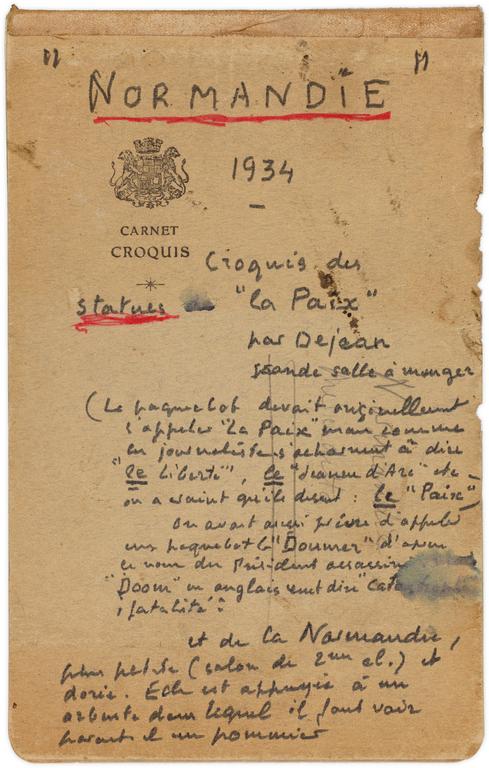 " NORMANDIE "
1934
CARNET
CROQUIS
Croquis des
statues de "la Paix"
par Dejean
grande salle à manger
(Le paquebot devait originellement
s'appeler "La Paix" mais comme
les journalistes s'acharnent à dire
"le Liberté", le "Jeanne d'Arc" etc
on a craint qu'ils disent : le "Paix")
On avait aussi prévu d'appeler
un paquebot le "Doumer" d'après
le nom du Président assassiné
"Doom" en anglais veut dire "catastrophe
, fatalité".
et de la Normandie,
plus petite (salon de 2me cl.) et
dorée. Elle est appuyée à un
arbuste dans lequel il faut voir
paraît-il un pommier